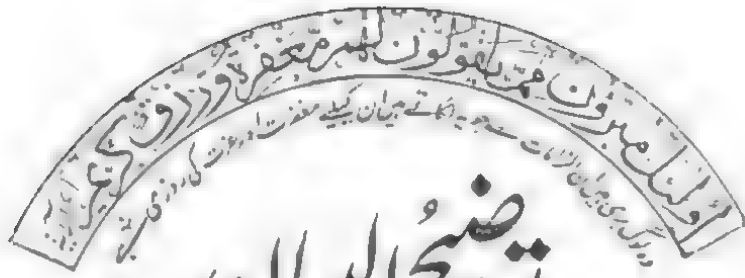 أُولٰئِكَ مُبَرَّءُونَ مِمَّا يَقُولُونَ لَهُمْ مَغْفِرَةٌ وَرِزْقٌ كَرِيمٌ
وہ لوگ بری ہیں ان الزامات سے جو یہ لگاتے ہیں ان کیلئے مغفرت اور عزت کی روزی ہے